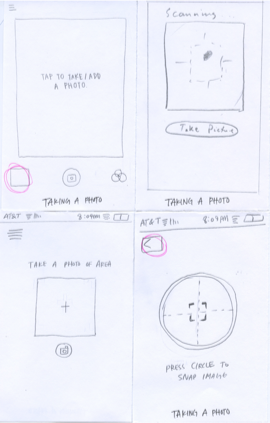 TAP TO TAKE/ADD
A PHOTO.
TAKING A PHOTO
Scanning
Take Picture
TAKING A PHOTO
AT&T
TAKE A PHOTO OF AREA
AT&T
8:09PM
PRESS CIRCLE TO
SNAP IMAGE
TAKING A PHOTO